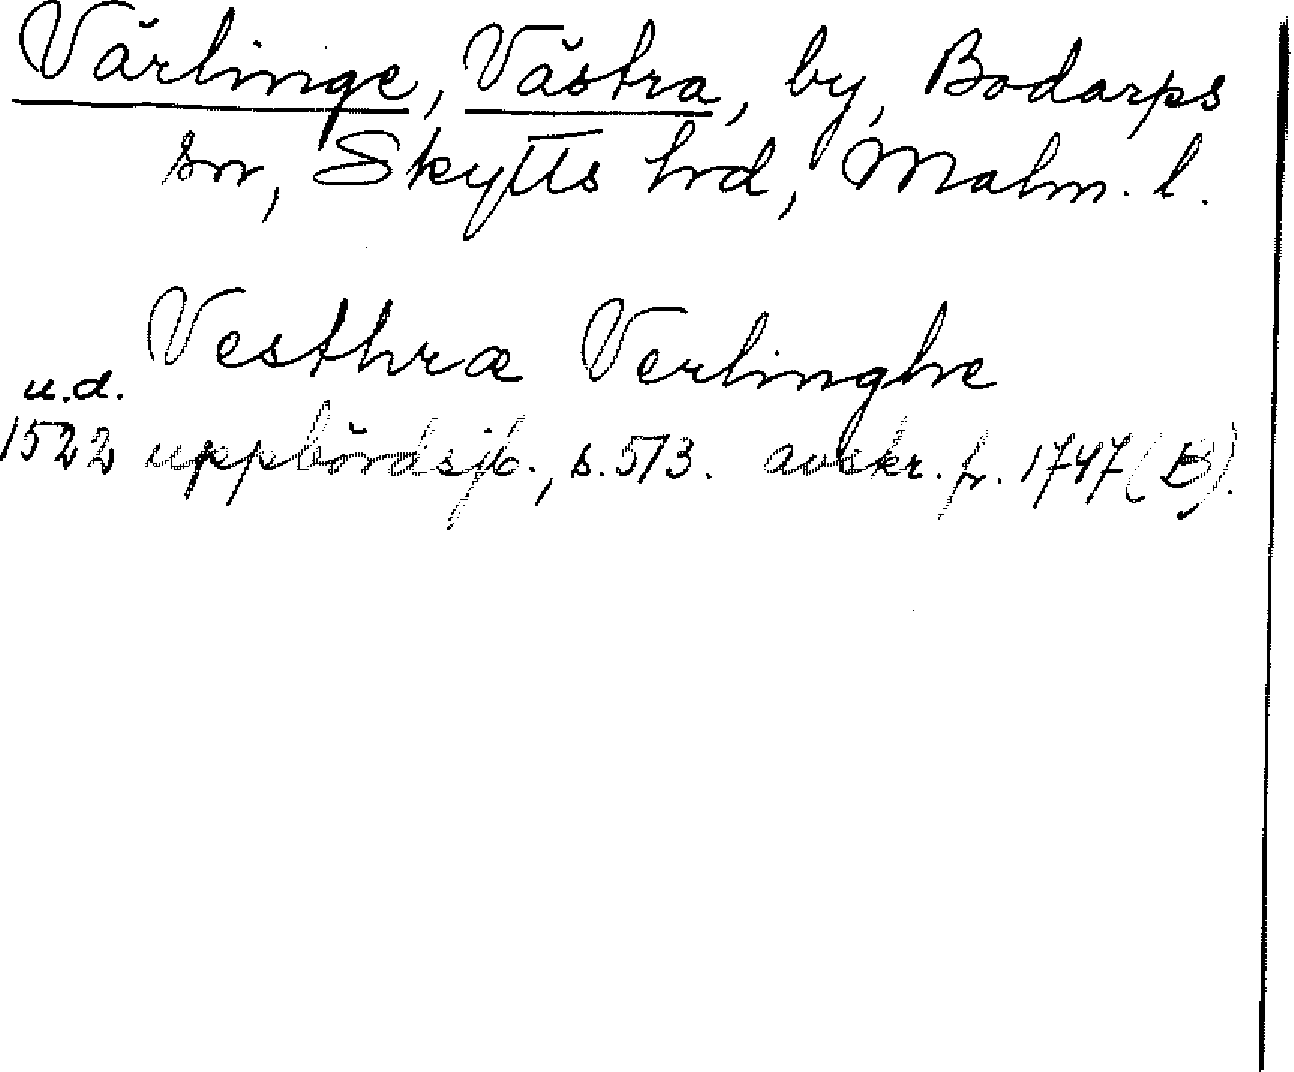 Värlinge, Västra, by, Bodarps
sn, Skytts hrd, Malm. l.
Vesthræ Verlinghe
u.d.
1522 uppbördsjb., s. 573. avskr. fr. 1747 (B).